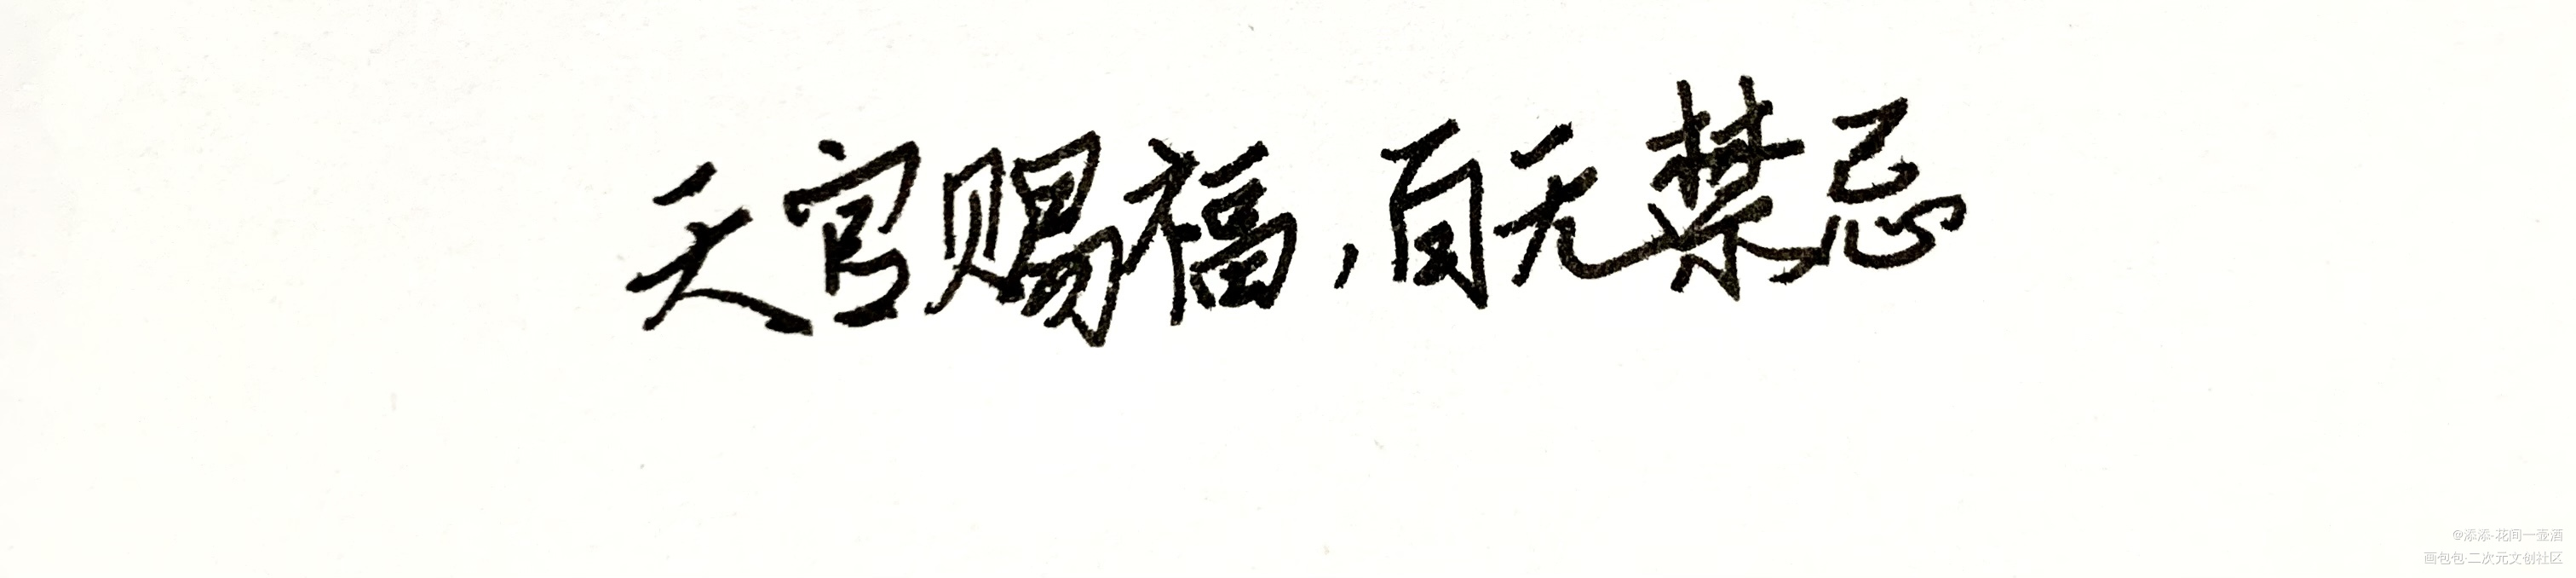 天官赐福，百无禁忌
@添添·花间一壶酒
画包包·二次元文创社区